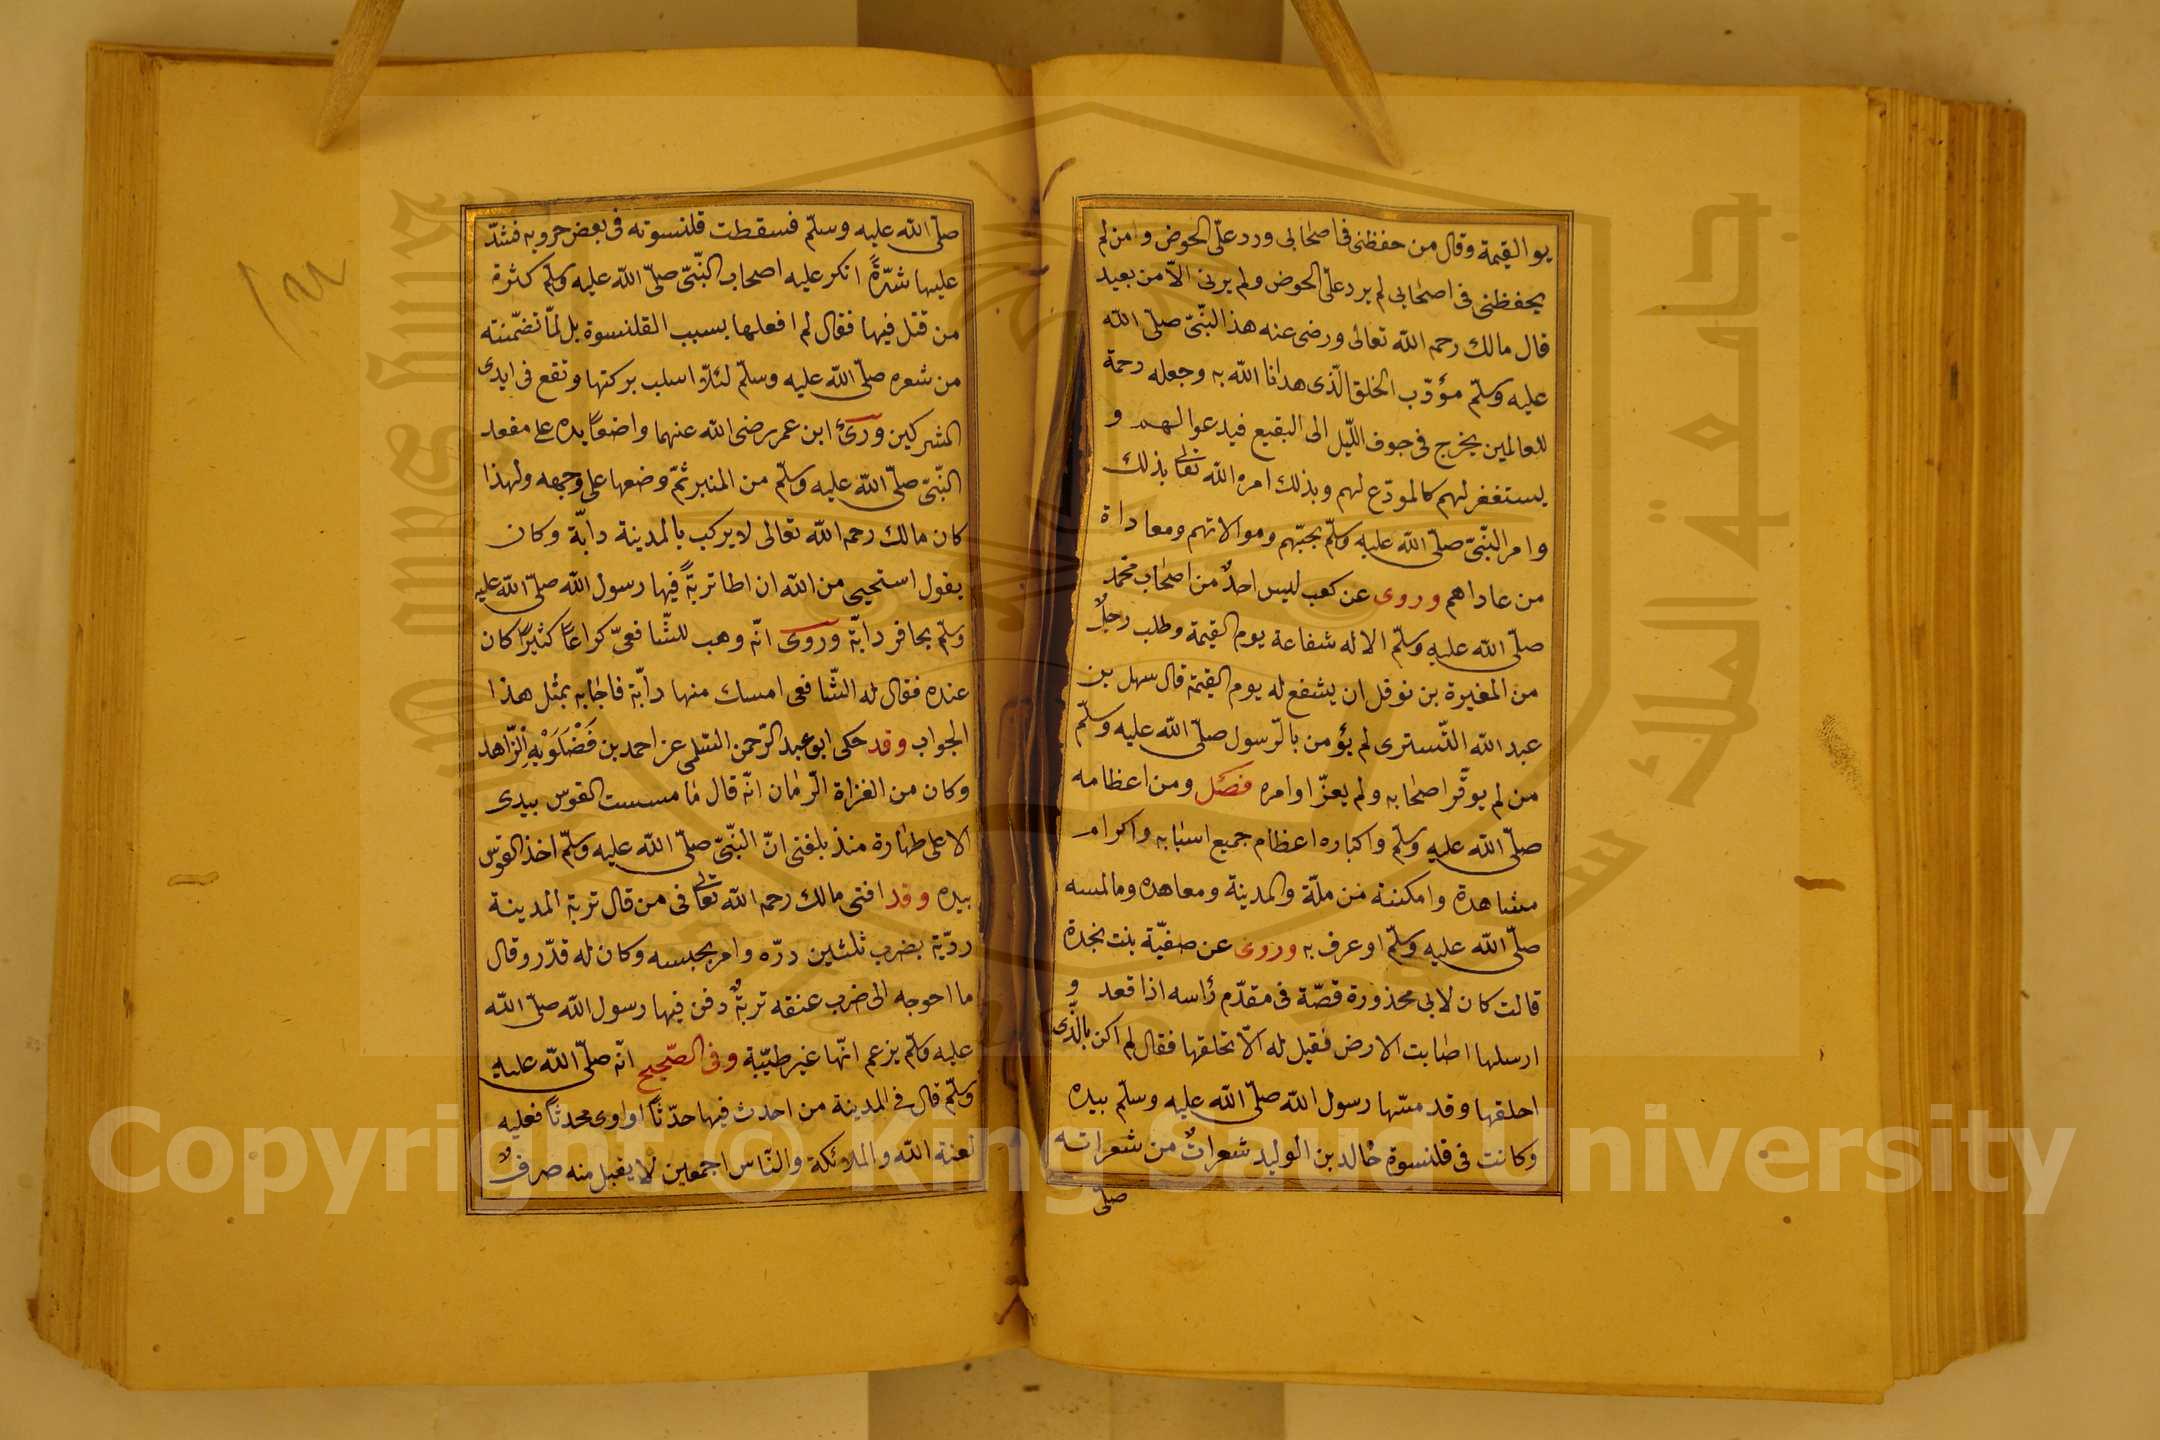 يوم القيمة وقال من حفظنى فى اصحابى ورد علىّ الحوض وامن لم
يحفظنى فى اصحابى لم يرد علىّ الحوض ولم يرنى الّا من بعيد
قال مالك رحمه الله تعالى ورضى عنه هذا النّبىّ صلّى الله
عليه وسلّم مؤدّب الخلق الّذى هدانا الله به وجعله رحمة
للعالمين يخرج فى جوف اللّيل الى البقيع فيدعوا لهم و
يستغفر لهم كالمودّع لهم وبذلك امره الله تعالى بذلك
وامر النّبىّ صلّى الله عليه وسلّم بحبّهم وموالاتهم ومعاداة
من عاداهم وروى عن كعب ليس احدٌ من اصحاب محمّد
صلّى الله عليه وسلّم الا له شفاعة يوم القيمة وطلب رجلٌ
من المغيرة بن نوفل ان يشفع له يوم القيمة قال سهل بن
عبد الله التّسترى لم يؤمن بالرّسول صلّى الله عليه وسلّم
من لم يوقّر اصحابه ولم يعزّ اوامره فصل ومن اعظامه
صلّى الله عليه وسلّم واكباره اعظام جميع اسبابه واكرام
مشاهدة وامكنته من ملّة والمدينة ومعاهده وما لمسه
صلّى الله عليه وسلّم او عرف به وروى عن صفيّة بنت نجدة
قالت كان لابى محذورة قصّة فى مقدّم رأسه اذا قعد و
ارسلها اصابت الارض فقيل له الّا تحلقها فقال لم اكن بالّذى
احلقها وقد مسّها رسول الله صلّى الله عليه وسلّم بيده
وكانت فى قلنسوة خالد بن الوليد شعراتٌ من شعراته
صلّى
صلّى الله عليه وسلّم فسقطت قلنسوته فى بعض حروبه فشدّ
عليها شدّةً انكر عليه اصحاب النّبىّ صلّى الله عليه وسلّم كثرة
من قتل فيها فقال لم افعلها بسبب القلنسوة بل لمّا تضمّنته
من شعره صلّى الله عليه وسلّم لئلّا اسلب بركتها وتقع فى ايدى
المشركين ورئ ابن عمر رضى الله عنهما واضعًا يده على مقعد
النّبىّ صلّى الله عليه وسلّم من المنبر ثمّ وضعها على وجهه ولهذا
كان مالك رحمه الله تعالى لا يركب بالمدينة دابّة وكان
يقول استحيى من الله ان اطا تربةً فيها رسول الله صلّى الله عليه
وسلّم بحافر دابّة وروى انّه وهب للشّافعىّ كراعًا كثيرًا كان
عنده فقال له الشّافعى امسك منها دابّة فاجابه بمثل هذا
الجواب وقد حكى ابو عبد الرّحمن السّلمى عن احمد بن فَضْلَوَيْهِ الزّاهد
وكان من الغزاة الرّمان انّه قال ما مسست القوس بيدى
الا على طهارة منذ بلغنى انّ النّبىّ صلّى الله عليه وسلّم اخذ القوس
بيده وقد افتى مالك رحمه الله تعالى فى من قال تربة المدينة
رديّة بضرب ثلثين درّه وامر بحبسه وكان له قدّر وقال
ما احوجه الى ضرب عنقه تربةٌ دفن فيها رسول الله صلّى الله
عليه وسلّم يزعم انّها غير طيّبة وفى الصّحيح انّه صلّى الله عليه
وسلّم قال فى المدينة من احدث فيها حدثًا او اوى محدثًا فعليه
لعنة الله والملائكة والنّاس اجمعين لا يقبل منه صرفٌ
جامعة الملك سعود
King Saud University
Copyright © King Saud University